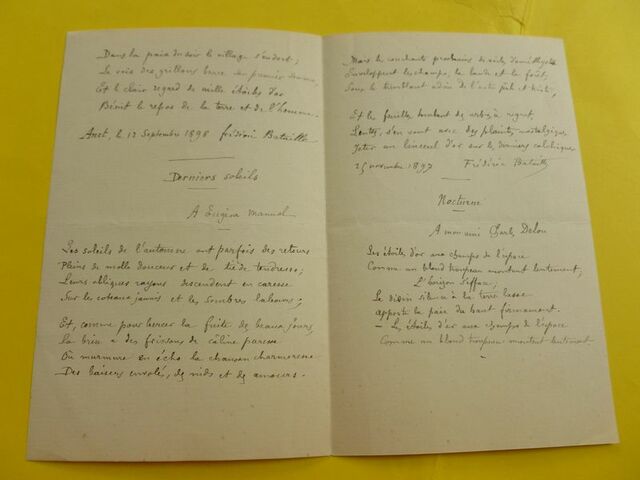 Dans la paix du soir le village s'endort ;
La voix des grillons berce son premier somme,
Et le clair regard de mille étoiles d'or
Bénit le repos de la terre et de l'homme.
Anet, le 12 Septembre 1898 Frédéric Bataille
Derniers soleils
A Eugène Manuel
Les soleils de l'automne ont parfois des retours
Pleins de molle douceur et de tiède tendresse ;
Leurs obliques rayons descendent en caresse
Sur les coteaux jaunis et les sombres labours ;
Et, comme pour bercer la fuite des beaux jours,
La brise a des frissons de câline paresse
Où murmure en écho la chanson charmeresse
Des baisers envolés, de nids et de amours.
Mais les couchants prochains de améthyste
Enveloppent les champs, la lande et la forêt,
Sous le tremblant adieu de l'astre pâle et triste,
Et les feuilles tombant des arbres à regret,
Lentes, s'en vont avec des plaintes nostalgiques
Jeter un linceul d'or sur les derniers colchiques
25 novembre 1897 Frédéric Bataille
Nocturne
A mon ami Charles Delon
Les étoiles d'or aux champs de l'espace
Comme un blond troupeau montent lentement ;
L'horizon s'efface ;
Le divin silence à la terre lasse
Apporte la paix du haut firmament.
— Les étoiles d'or aux champs de l'espace
Comme un blond troupeau montent lentement.